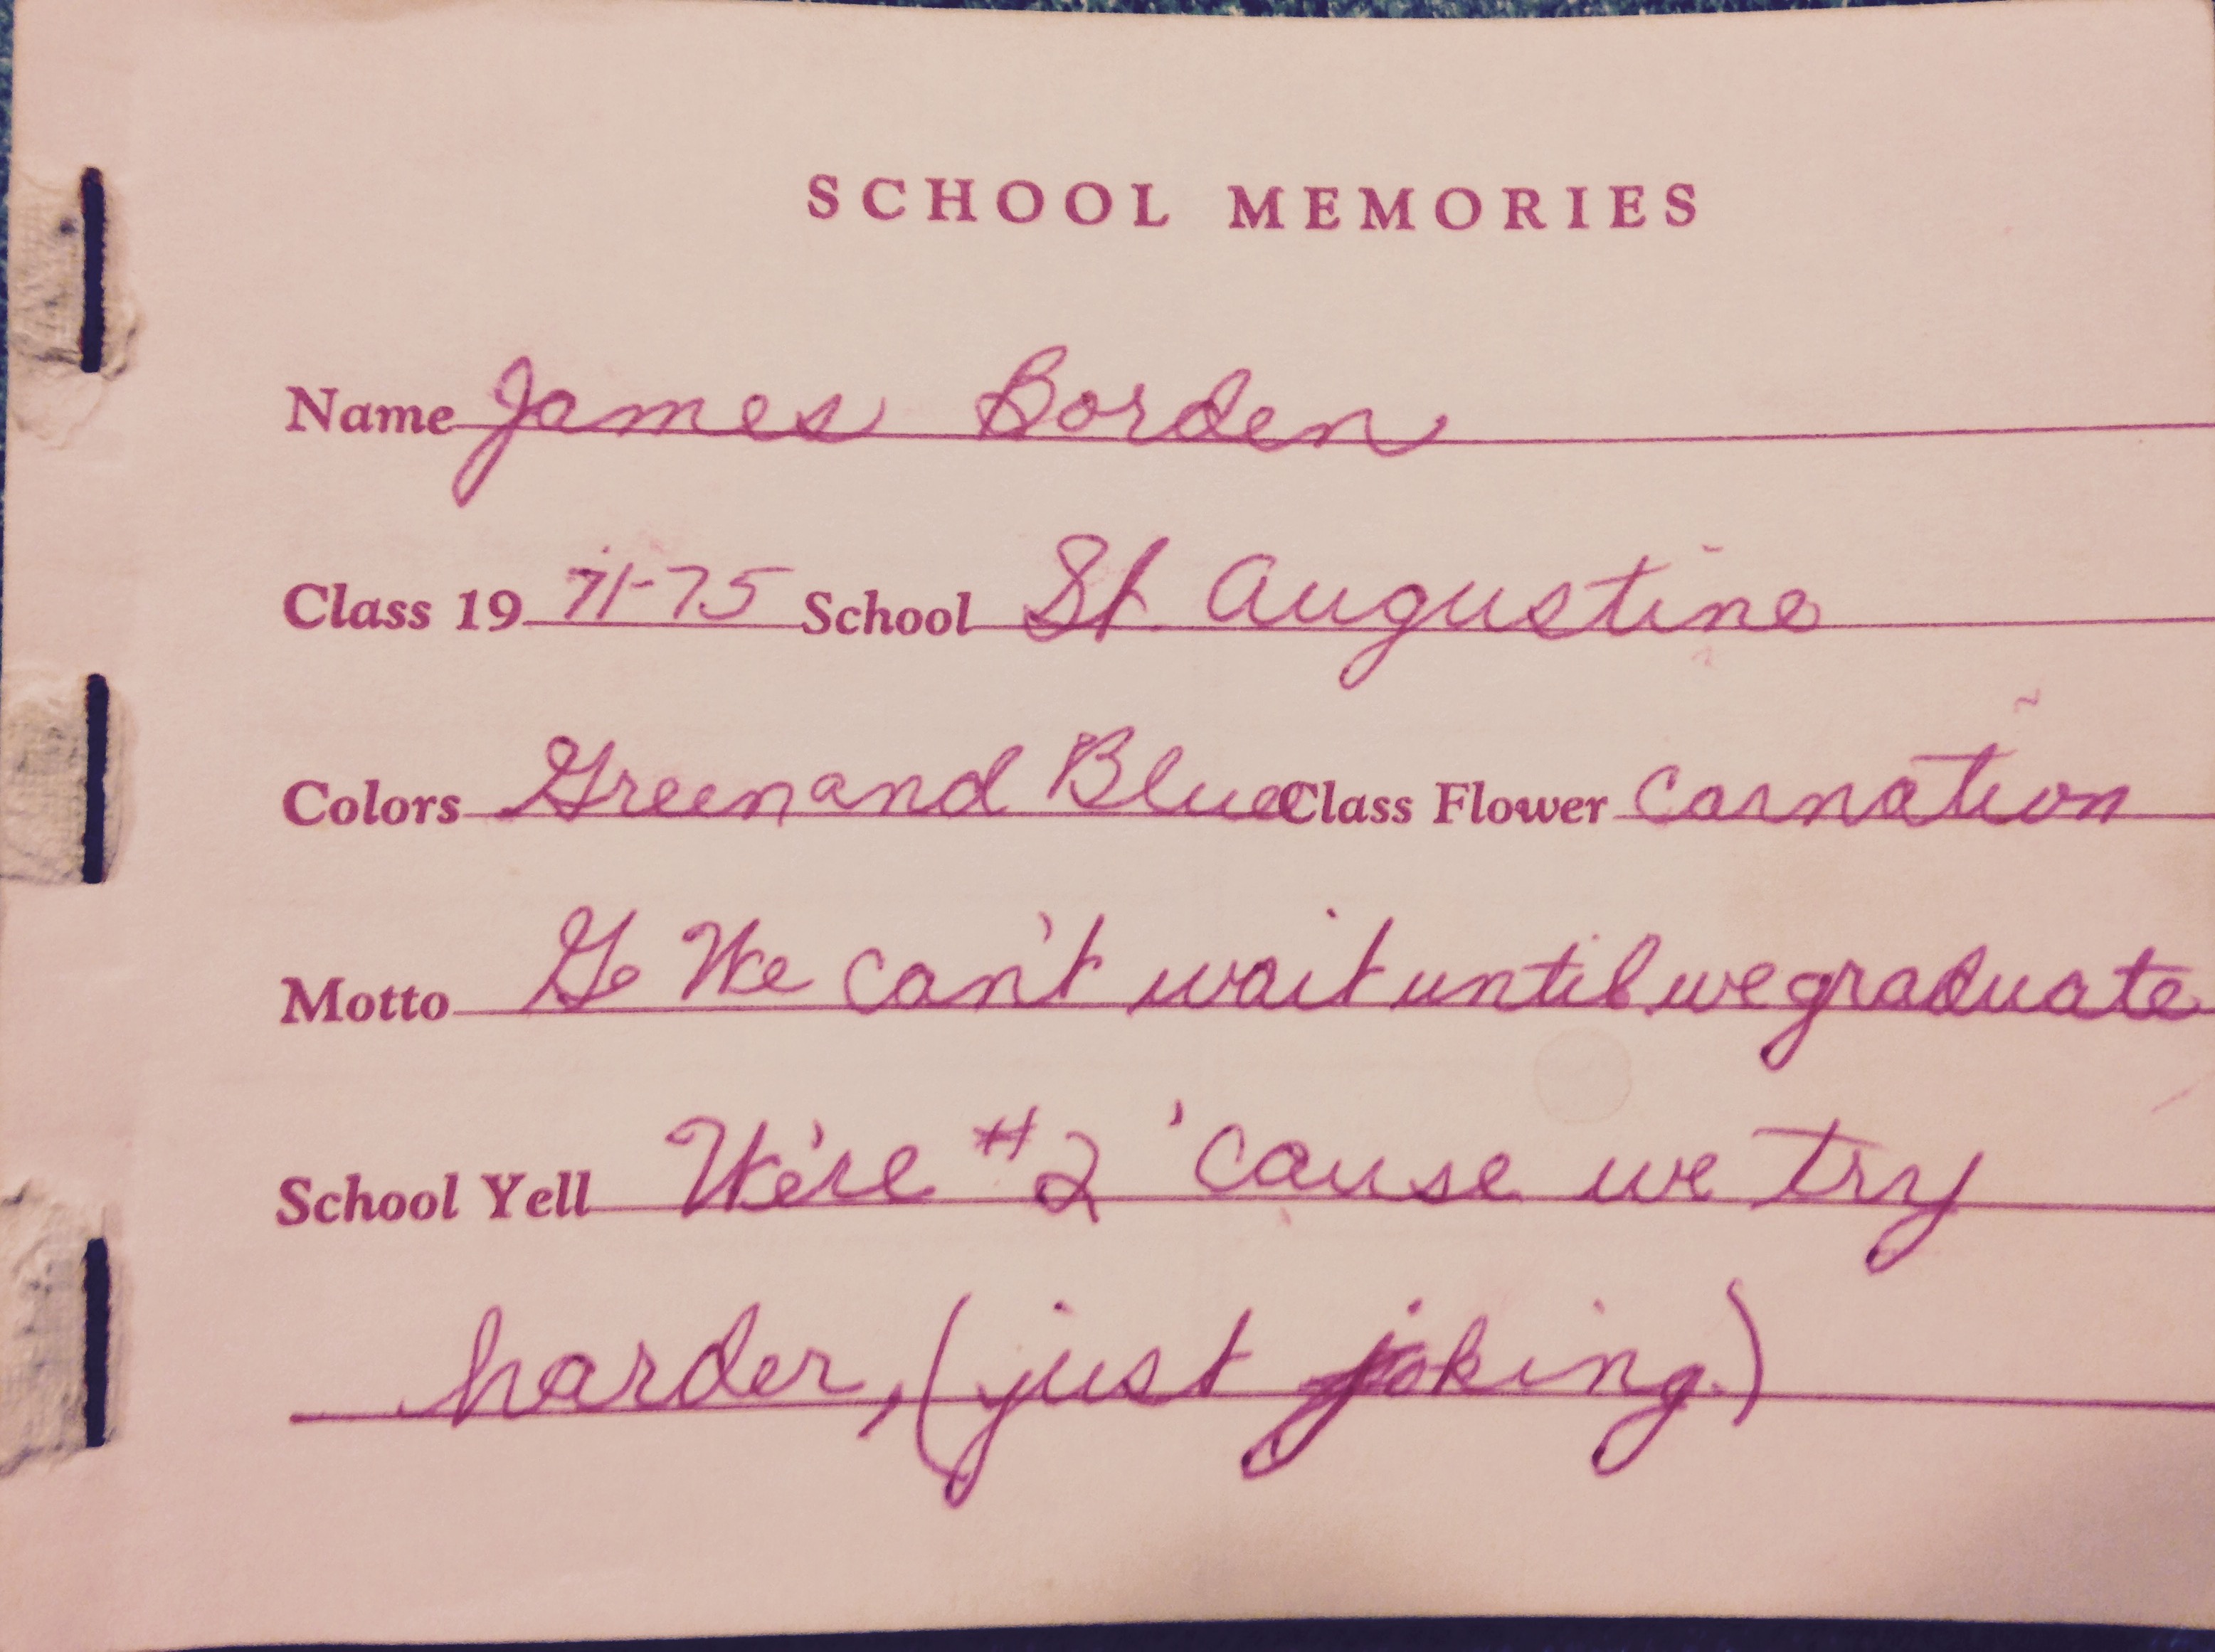 SCHOOL MEMORIES
Name James Borden
Class 19 71-75 School St. Augustine
Colors Green and Blue Class Flower Carnation
Motto Go We can't wait until we graduate
School Yell We're #2 'cause we try
harder, (just joking.)